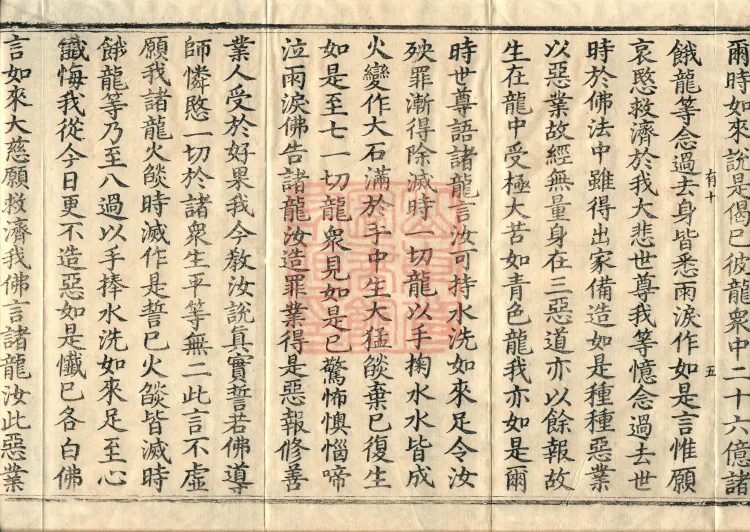 爾時如來說是偈已彼龍衆中二十六億諸
餓龍等念過去身皆悉雨淚作如是言惟願
哀愍救濟於我大悲世尊我等憶念過去世
時於佛法中雖得出家備造如是種種惡業
以惡業故經無量身在三惡道亦以餘報故
生在龍中受極大苦如青色龍我亦如是爾
時世尊語諸龍言汝可持水洗如來足令汝
殃罪漸得除滅時一切龍以手掬水水皆成
火變作大石滿於手中生大猛燄棄已復生
如是至七一切龍衆見如是已驚怖懊惱啼
泣雨淚佛告諸龍汝造罪業得是惡報修善
業人受於好果我今教汝說真實誓若佛導
師憐愍一切於諸衆生平等無二此言不虛
願我諸龍火燄時滅作是誓已火燄皆滅時
餓龍等乃至八過以手捧水洗如來足至心
懺悔我從今日更不造惡如是懺已各白佛
言如來大慈願救濟我佛言諸龍汝此惡業
有十
五